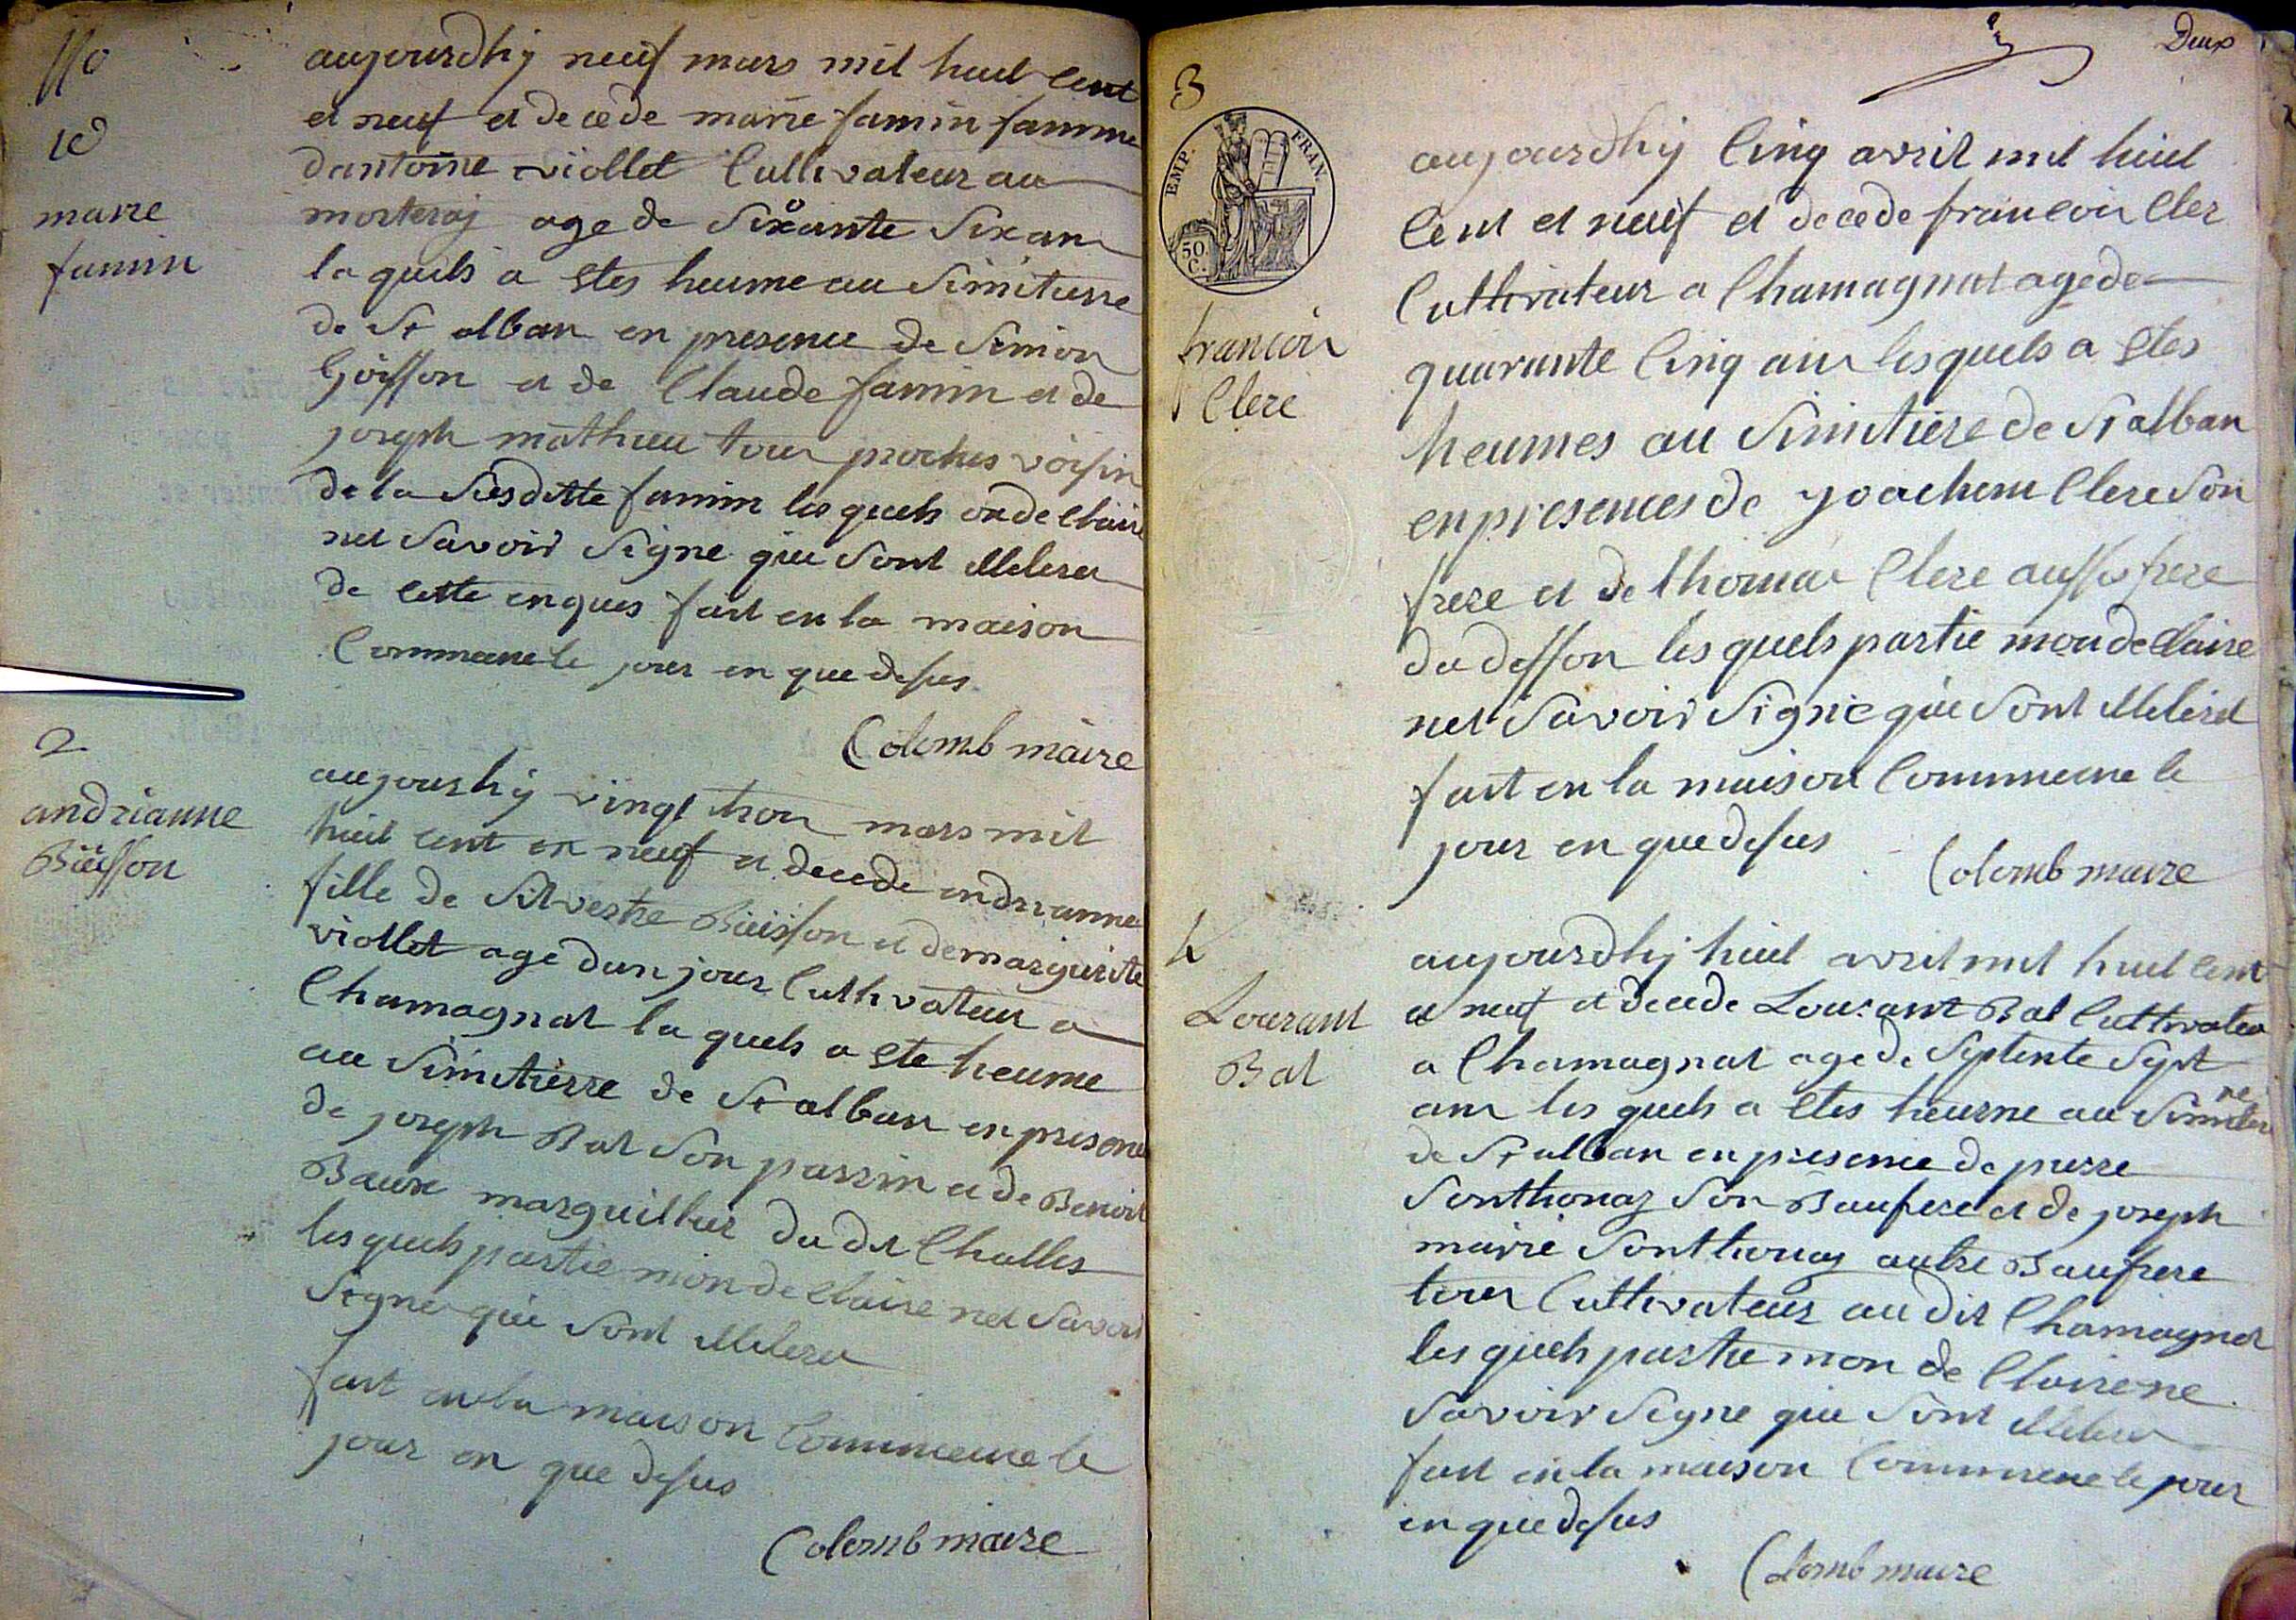 No
1e
marie
famin
aujourdhÿ neuf mars mil huit Cent
et neuf et decede marie famin famme
dantoine viollet Cultivateur au
morteraÿ age de Sixante Six ans
la quels a etes heume au Simitierre
de St alban en presence de Simon
Goisson et de Claude famin et de
joseph mathieu tous proches voisin
de la Susditte famin les quels on de Claire
net Savoir Signe que Sont
de Cette enques fait en la maison
Commeune le jour en que desus
Colomb maire
2
andrianne
Buisson
aujourhÿ vingt trois mars mil
huit cent en neuf et decede andrianne
fille de Silvestre Buisson et de marguerite
viollet age dun jour Cultivateur a
Chamagnat la quels a ete heume
au Simitierre de St alban en presence
de joseph Bat Son parrin et de Benoit
Baux marguillier du dit Challes
les quels partie mon de Claire net Savoir
Signe que Sont
fait en la maison Commeune le
jour en que desus
Colomb maire
Deux
3
EMP. FRAN.
50 C.
francois
Clerc
aujourdhÿ Cinq avril mil huit
Cent et neuf et decede francois Clerc
Cultivateur a Chamagnat age de
quarante Cinq ans les quels a etes
heumes au Simitiere de St alban
en presences de joachem Clerc Son
frere et de thomas Clerc aussi frere
du desson les quels partie mon de Claire
net Savoir Signe que Sont
fait en la maison Commeune le
jour en que desus
Colomb maire
4
Lourant
Bat
aujourdhÿ huit avril mil huit Cent
et neuf et decede Lourant Bat Cultivateur
a Chamagnat age de Septente Sept
ans les quels a etes heume au Simitiere
de St alban en presence de pierre
Sonthonaz Son Baufrere et de joseph
marie Sonthonaz autre Baufrere
tous Cultivateur au dit Chamagnat
les quels partie mon de Claire ne
Savoir Signe que Sont
fait en la maison Commeune le jour
en que desus
Colomb maire